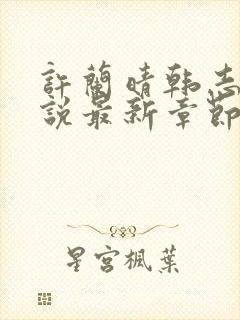 許蘭晴韩志
說最新章節
星宮楓葉